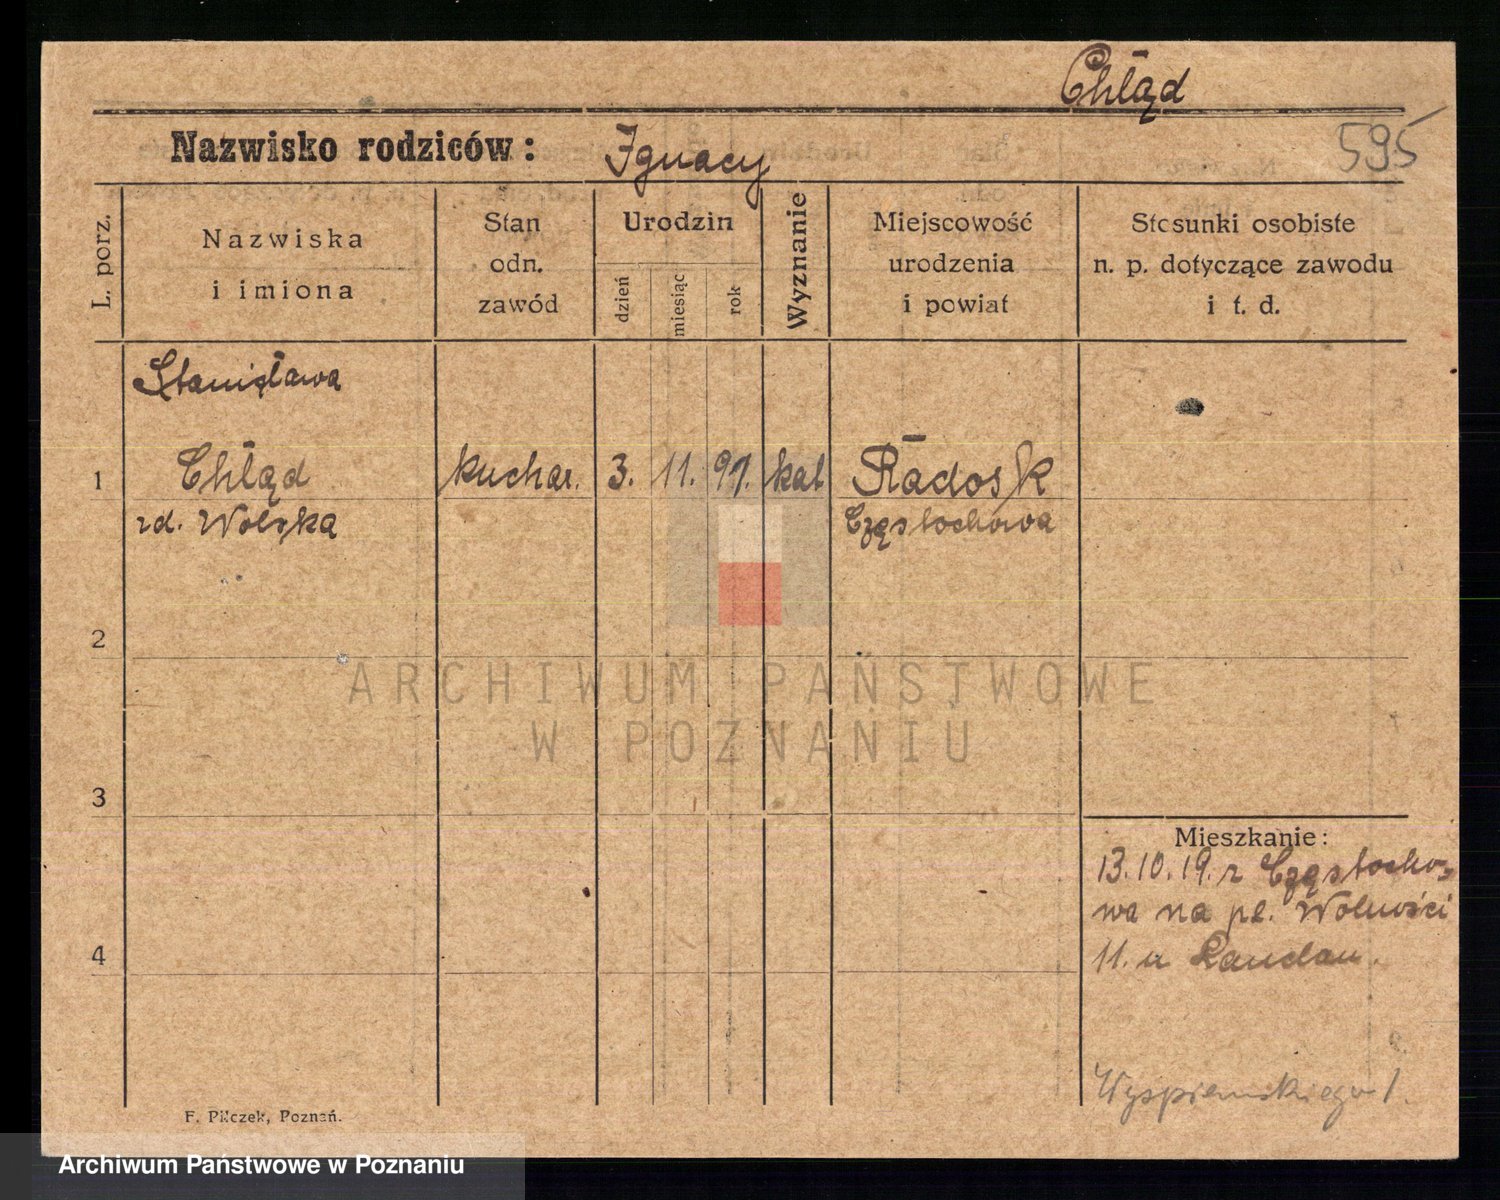 Chłąd
Nazwisko rodziców: Ignacy
595
L. porz.
Nazwiska
i imiona
Stan
odn.
zawód
Urodzin
dzień
miesiąc
rok
Wyznanie
Miejscowość
urodzenia
i powiat
Stosunki osobiste
n. p. dotyczące zawodu
i t. d.
Stanisława
1 Chłąd kuchar. 3. 11. 97. kat
zd. Wolska Częstochowa
2
3
4
Mieszkanie:
13.10.19. z Częstocho-
wa na pl. Wolności
11. u Landau.
Wyspiańskiego 1.
F. Pilczek, Poznań.
ARCHIWUM PAŃSTWOWE
W POZNANIU
Archiwum Państwowe w Poznaniu